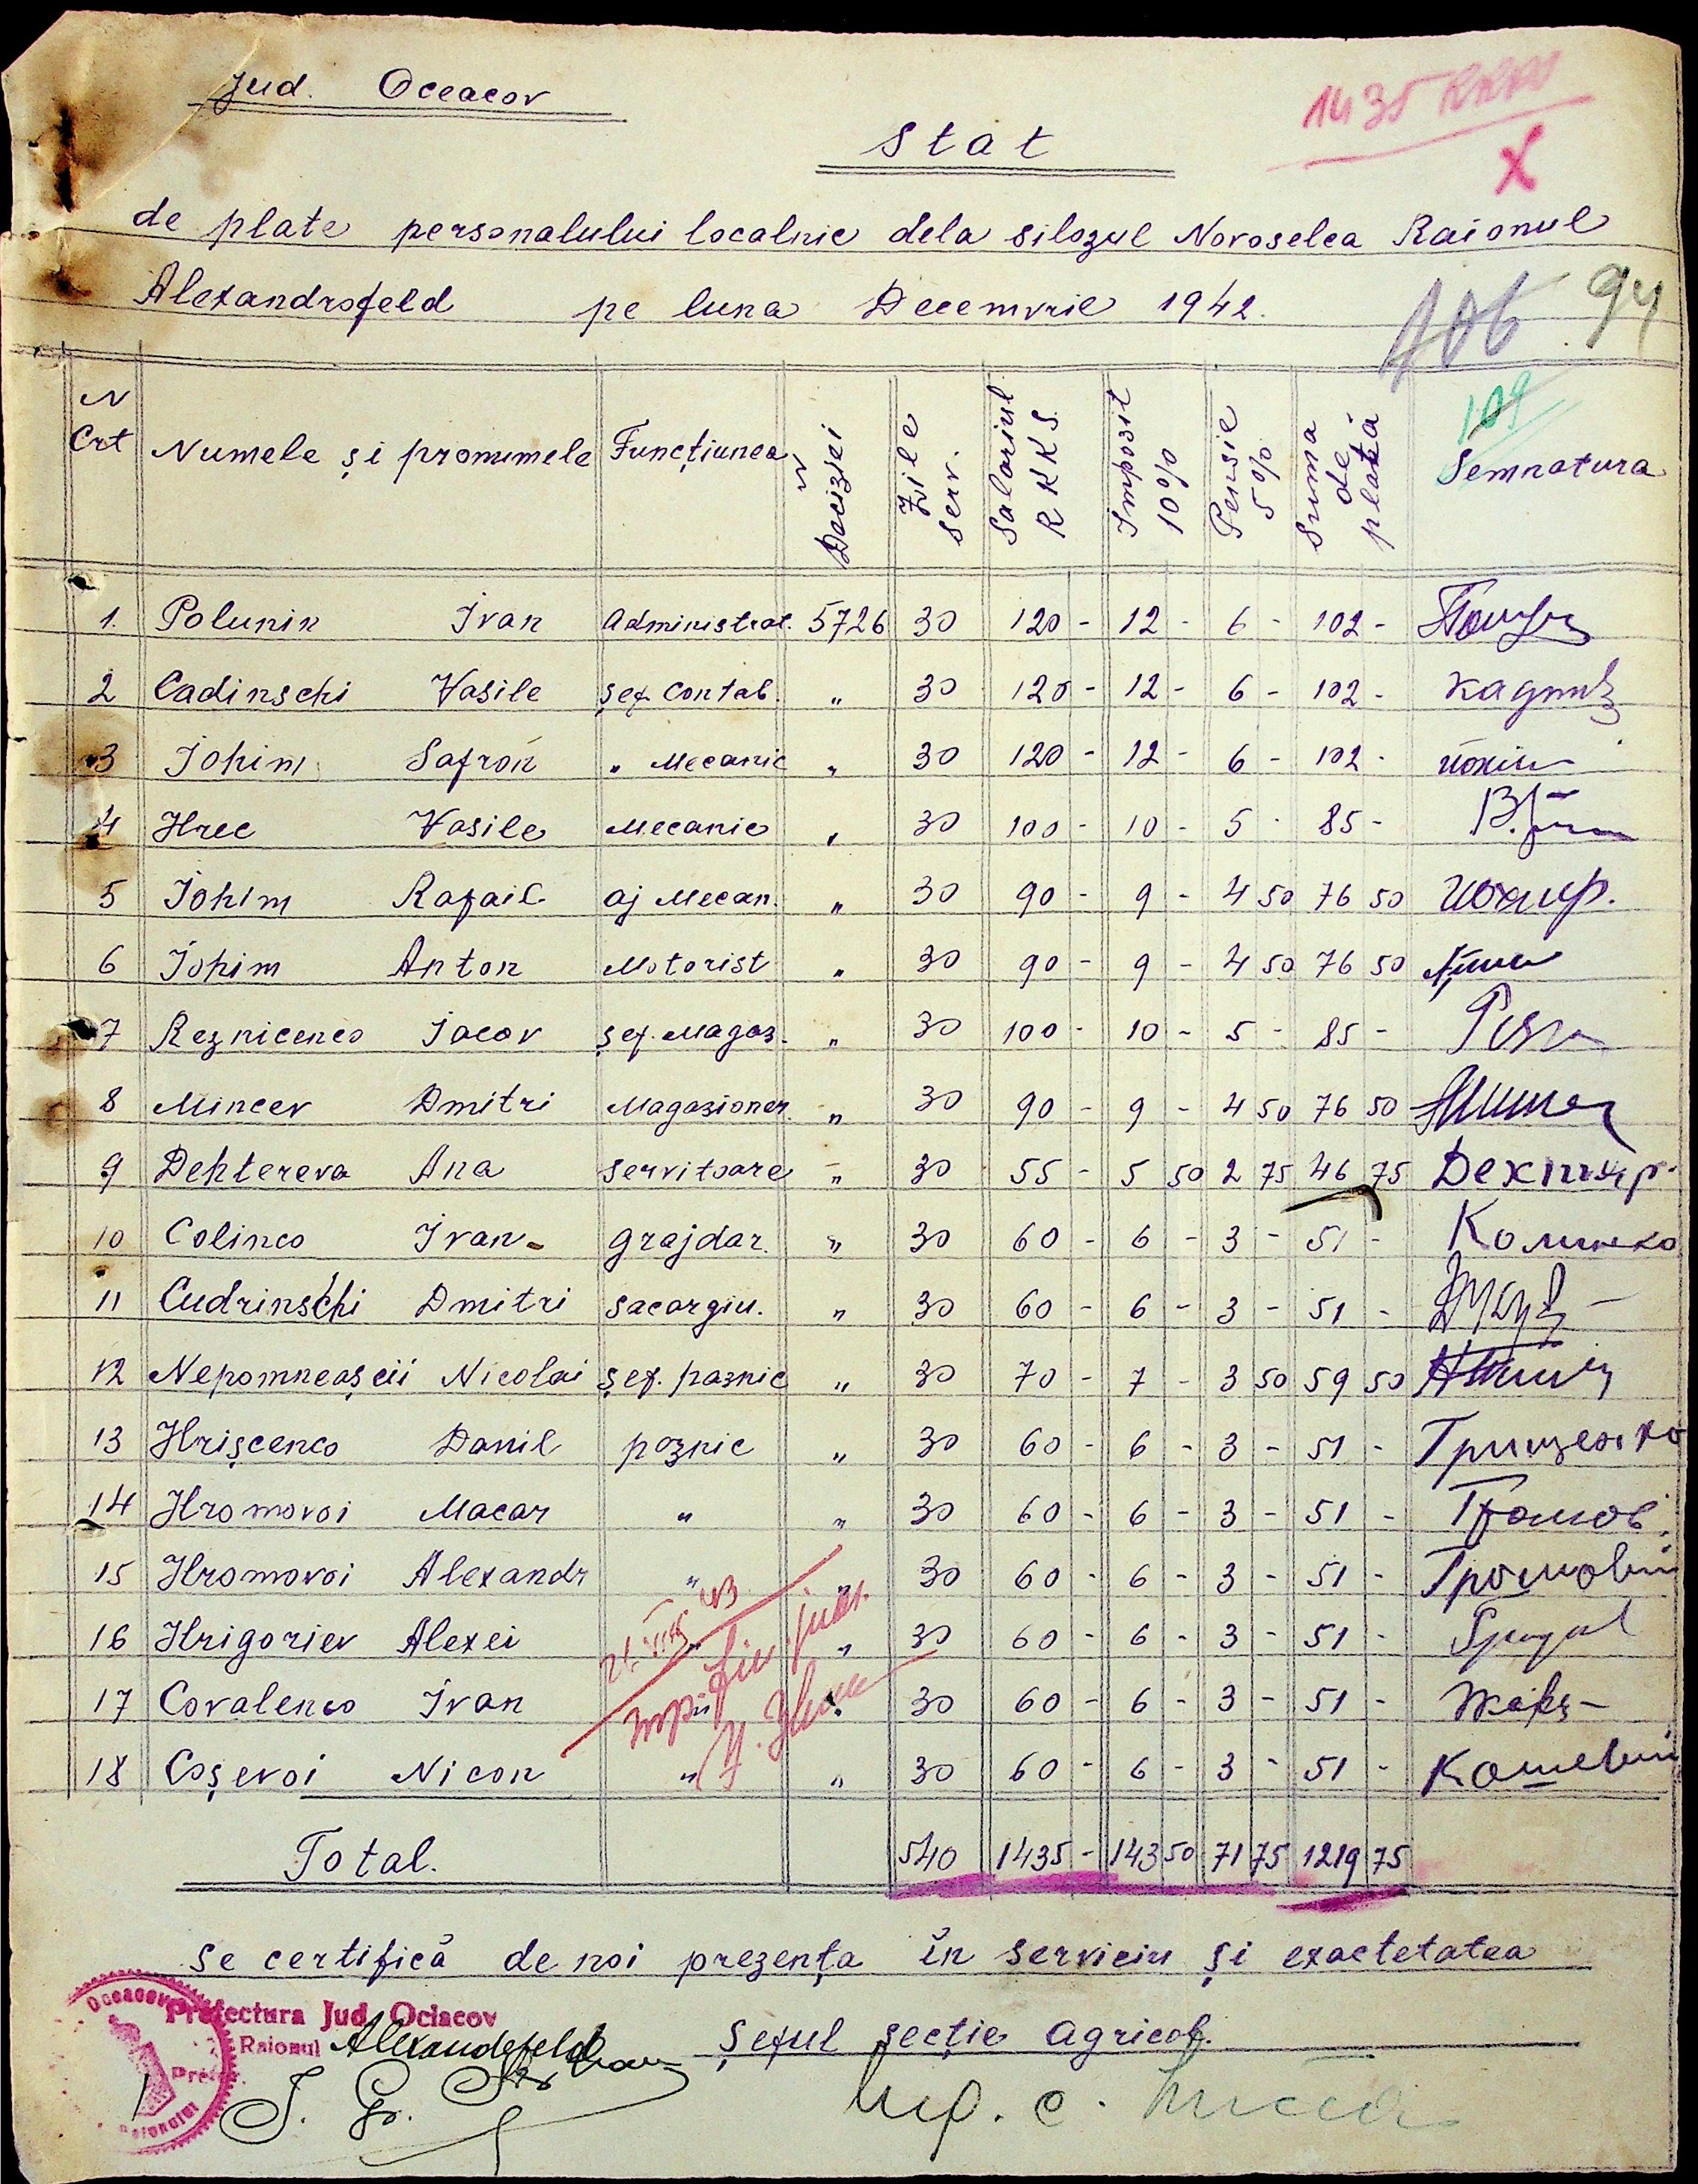 Jud. Oceacov
1435 RKKS
X
Stat
de plate personalului localnic dela silozul Novoselca Raionul
Alexandrofeld pe luna Decemvrie 1942.
106 94
109
N Crt Numele și pronumele Funcțiunea N Deciziei Zile serv. Salariul RKKS. Impozit 10% Pensie 5% Suma de plată Semnatura
1. Polunin Ivan Administrat. 5726 30 120 - 12 - 6 - 102 -
2 Cadinschi Vasile șef contab. " 30 120 - 12 - 6 - 102 -
3 Johim Safron " Mecanic " 30 120 - 12 - 6 - 102 -
4 Hrec Vasile Mecanic " 30 100 - 10 - 5 - 85 -
5 Johim Rafail aj Mecan. " 30 90 - 9 - 4 50 76 50
6 Johim Anton Motorist " 30 90 - 9 - 4 50 76 50
7 Reznicenco Iacov șef. Magaz. " 30 100 - 10 - 5 - 85 -
8 Mincev Dmitri Magasioner. " 30 90 - 9 - 4 50 76 50
9 Dehtereva Ana servitoare " 30 55 - 5 50 2 75 46 75
10 Colinco Ivan grajdar. " 30 60 - 6 - 3 - 51 - Колинко
11 Cudrinschi Dmitri sacargiu. " 30 60 - 6 - 3 - 51 -
12 Nepomneașcii Nicolai șef. paznic " 30 70 - 7 - 3 50 59 50
13 Hrișcenco Danil paznic " 30 60 - 6 - 3 - 51 - Грищенко
14 Hromovoi Macar " " 30 60 - 6 - 3 - 51 - Громов.
15 Hromovoi Alexandr " " 30 60 - 6 - 3 - 51 - Громовий
16 Hrigoriev Alexei " " 30 60 - 6 - 3 - 51 -
17 Covalenco Ivan " " 30 60 - 6 - 3 - 51 -
18 Coșevoi Nicon " " 30 60 - 6 - 3 - 51 - Кошевий
Total. 540 1435 - 143 50 71 75 1219 75
se certifică de noi prezența în serviciu și exactetatea
Prefectura Jud. Ociacov
Raionul Alexandrfeld
șeful secție agricol.